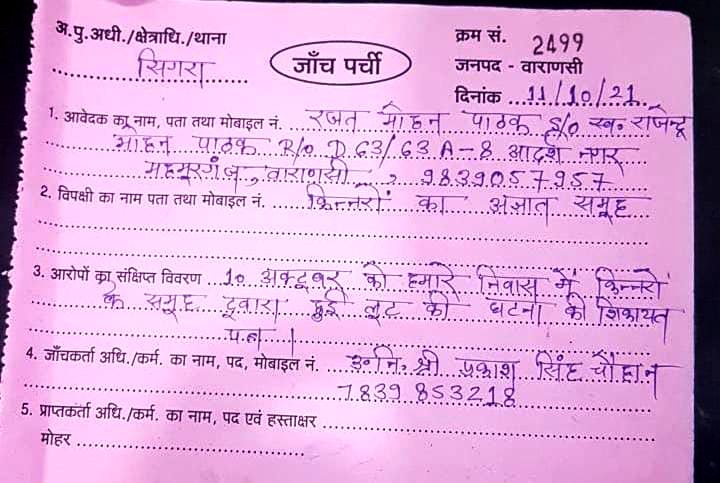 अ.पु.अधी./क्षेत्राधि./थाना
सिगरा
जाँच पर्ची
क्रम सं. 2499
जनपद - वाराणसी
दिनांक 11/10/21
1. आवेदक का नाम, पता तथा मोबाइल नं. रजत मोहन पाठक S/o स्व॰ राजेन्द्र
मोहन पाठक R/o D 63/63 A-8 आदर्श नगर
महमूरगंज, वाराणसी, 9839057957
2. विपक्षी का नाम पता तथा मोबाइल नं. किन्नरों का अज्ञात समूह
3. आरोपों का संक्षिप्त विवरण 10 अक्टूबर को हमारे निवास में किन्नरों
के समूह द्वारा हुई लूट की घटना की शिकायत
पत्र ।
4. जाँचकर्ता अधि./कर्म. का नाम, पद, मोबाइल नं. उ॰नि॰ श्री प्रकाश सिंह चौहान
7839853218
5. प्राप्तकर्ता अधि./कर्म. का नाम, पद एवं हस्ताक्षर
मोहर